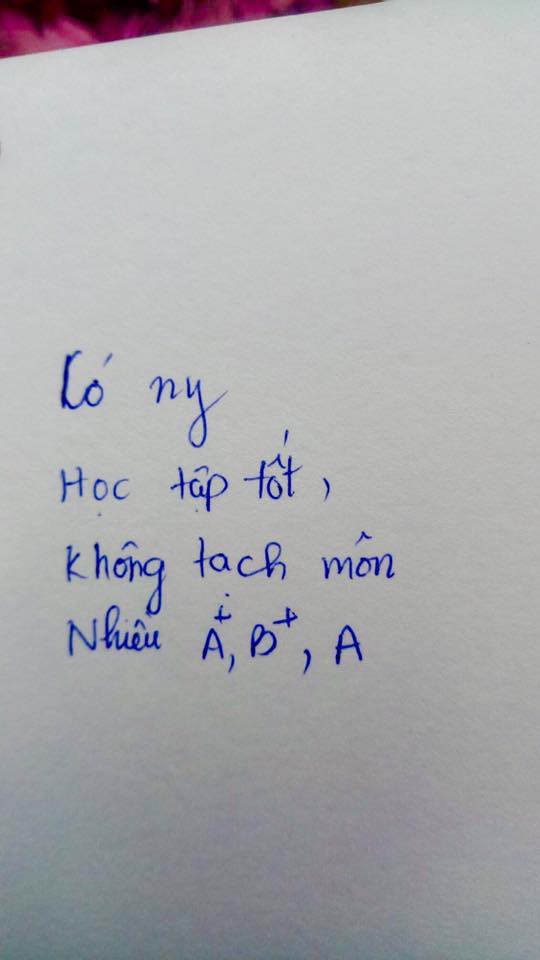 Có ny
Học tập tốt,
Không tach môn
Nhiều A+, B+, A